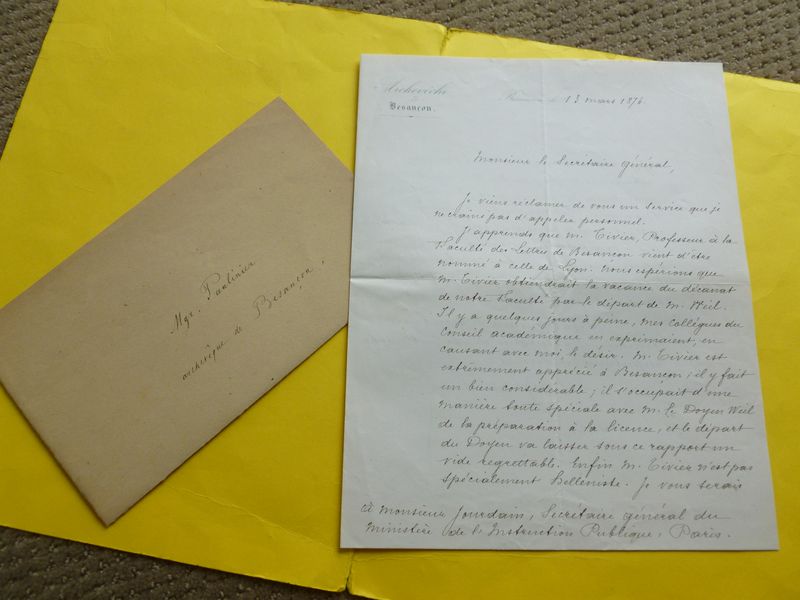 Mgr. Paulinier
archevêque de Besançon.
Archevêché
Besançon.
13 mars 1876
Monsieur le Secrétaire général,
Je viens réclamer de vous un service que je
ne crains pas d'appeler personnel.
J'apprends que M. Tivier, Professeur à la
Faculté des Lettres de Besançon vient d'être
nommé à celle de Lyon. Nous espérions que
M. Tivier obtiendrait la vacance du décanat
de notre Faculté par le départ de M. Weil.
Il y a quelques jours à peine, mes collègues du
Conseil académique en exprimaient, en
causant avec moi, le désir. M. Tivier est
extrêmement apprécié à Besançon ; il y fait
un bien considérable ; il s'occupait d'une
manière toute spéciale avec M. le Doyen Weil
de la préparation à la licence, et le départ
du Doyen va laisser sous ce rapport un
vide regrettable. Enfin M. Tivier n'est pas
spécialement helléniste. Je vous serais
à Monsieur Jourdain, Secrétaire général du
Ministère de l'Instruction Publique, Paris.